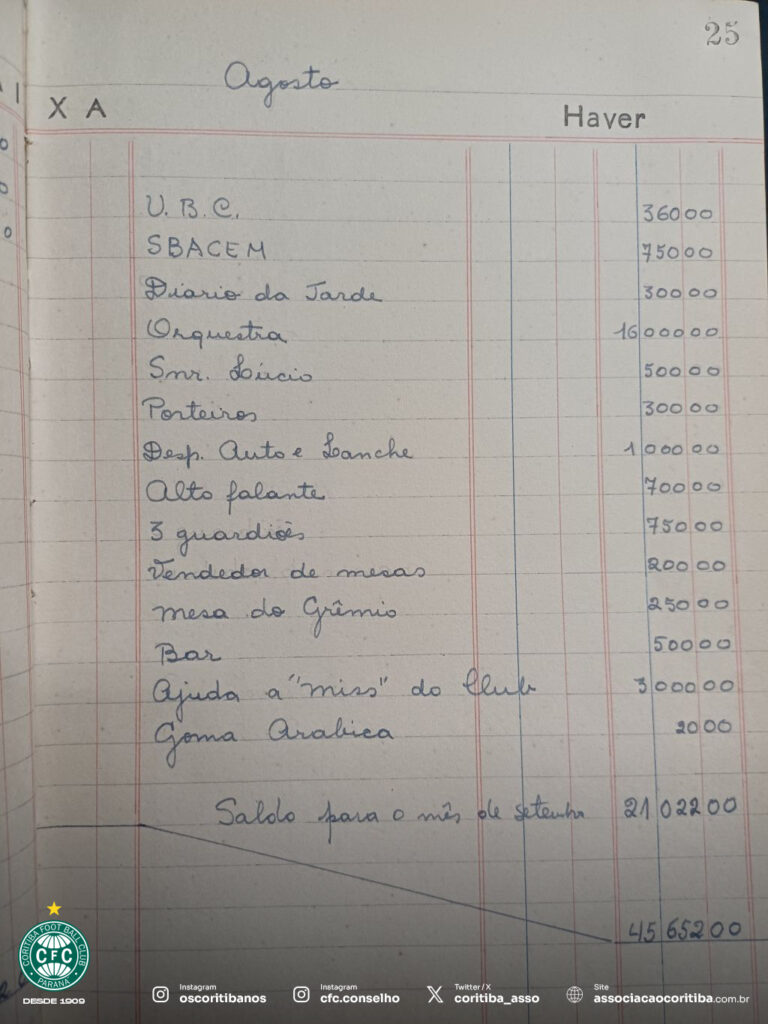 25
Agosto
X A
Haver
U. B. C. 36000
SBACEM 75000
Diario da Tarde 30000
Orquestra 1600000
Snr. Lúcio 50000
Porteiros 30000
Desp. Auto e Lanche 100000
Alto falante 70000
3 guardiões 75000
Vendedor de mesas 20000
mesa do Grêmio 25000
Bar 50000
Ajuda a "miss" do Club 300000
Goma Arabica 2000
Saldo para o mês de setembr 2102200
4565200
CORITIBA FOOT BALL CLUB
CFC
PARANÁ
DESDE 1909
Instagram
oscoritibanos
Instagram
cfc.conselho
Twitter / X
coritiba_asso
Site
associacaocoritiba.com.br